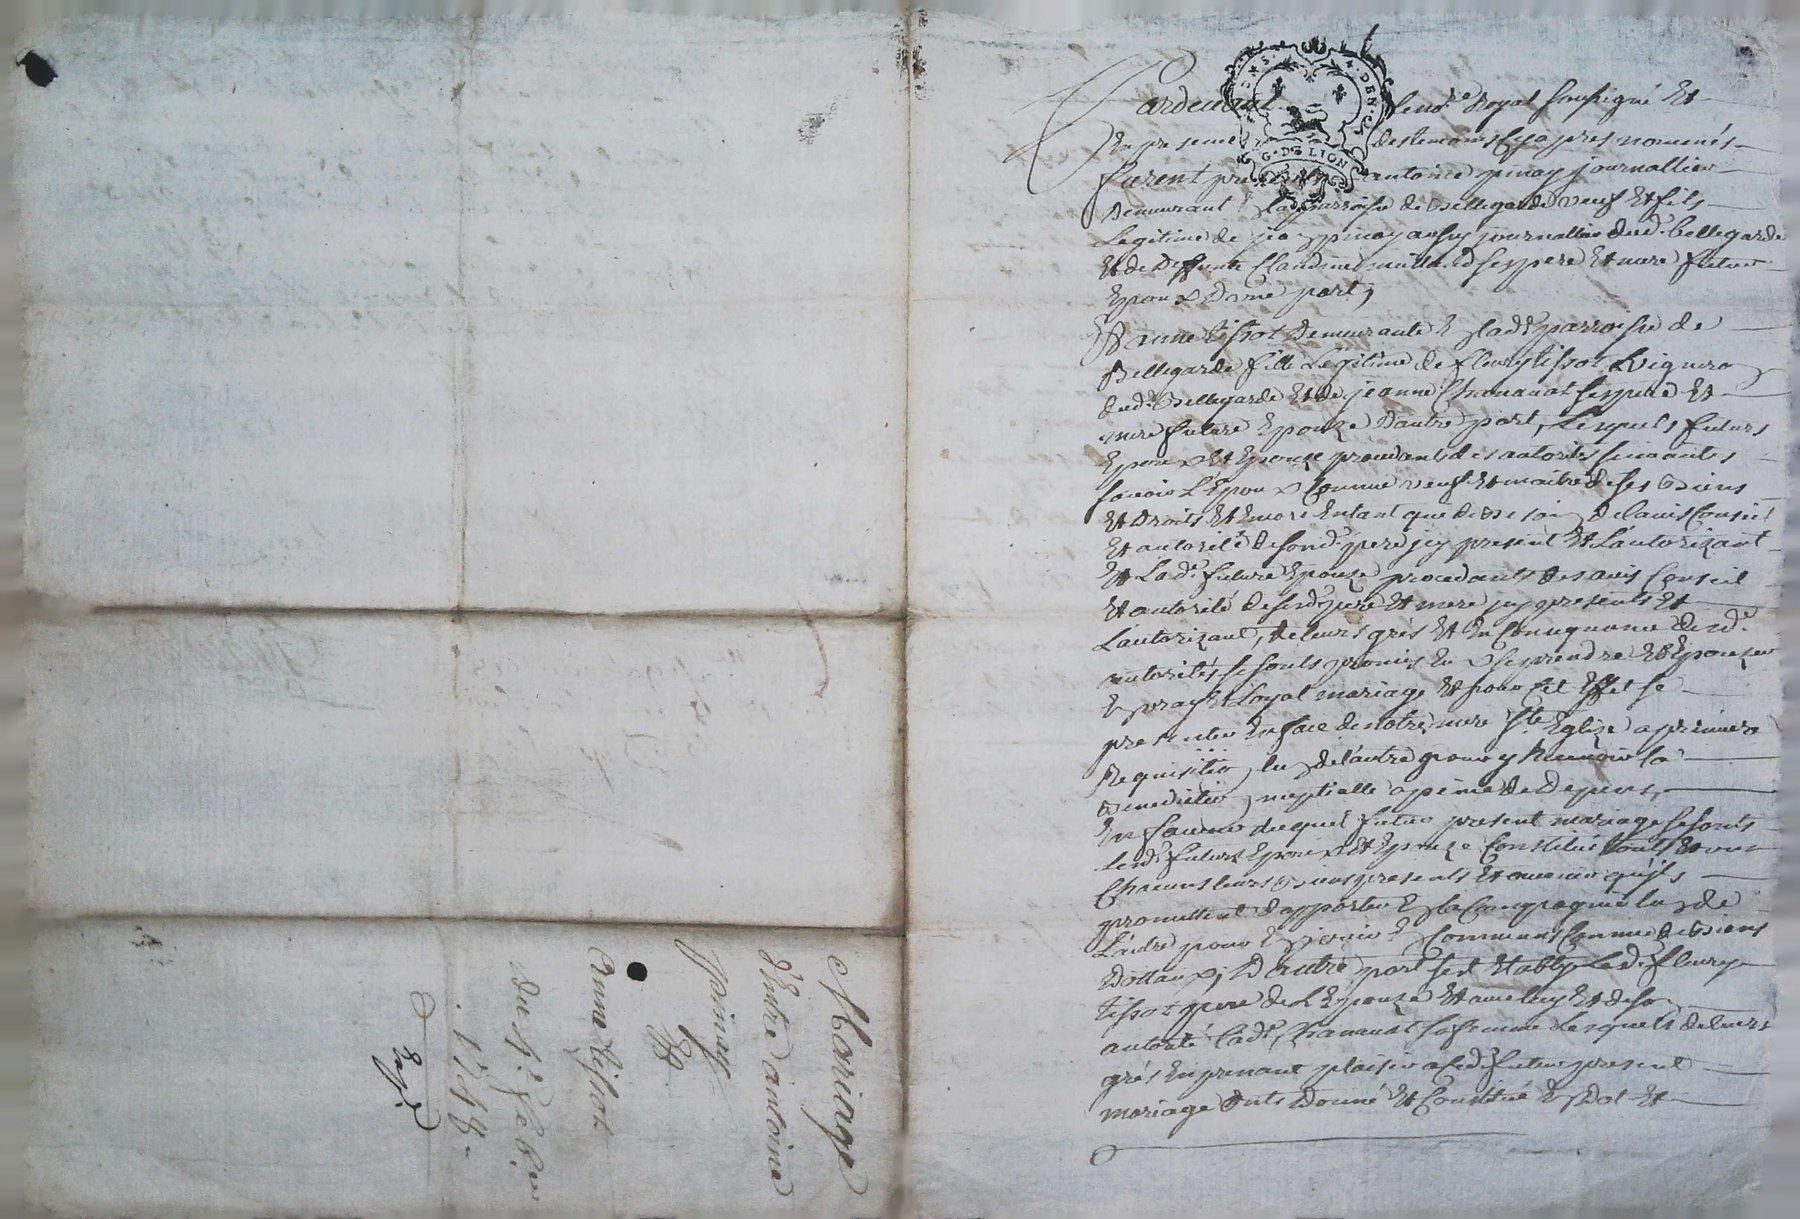 Mariage
d'entre antoine
pinay
Et
anne tissot
du 4e feb.er
1748.
Exp.é
G. DE LION
Pardevant le no.re Royal soussigné Et
En presence des temoins Cy apres nommés
furent presents antoine pinay journallier
Demeurant En la parroisse de Bellegarde veuf Et fils
Legitime de jean pinay aussy journallier dud. bellegarde
Et de Deffunte Claudine ses pere Et mere futur
Epoux D'une part,
Et anne tissot Demeurante En lad.e parroisse de
Bellegarde fille Legitime de fleury tissot Vigneron
dud. Bellegarde Et de jeanne Chanavat ses pere Et
mere future Epouze D'autre part, Lesquels futurs
Epoux Et Epouze procedants des autorités suivantes
sçavoir L'Epoux Comme veuf Et maitre de ses Biens
Et Droits Et Encore Entant que de Besoin de l'avis Conseil
Et autorité de son d. pere icy present Et L'autorizant
Et Lad.e future Epouze procedante des avis Conseil
Et autorité de sesd. pere Et mere icy presents Et
L'autorizant, de leurs grés Et En Consequence desd.
autorités se sonts promis En x se prendre Et Epouzer
En vray Et Loyal mariage Et pour cet Effet se
presenter En face de notre mere S.te Eglize a premiere
Requisition L'un de l'autre pour y Recevoir la
Benediction nuptialle a peine de Depens,
En faveur duquel futur present mariage se sonts
Lesd. futurs Epoux Et Epouze Constitué touts Et un
Chacuns leurs Biens presents Et avenir qu'jls
promettent d'apporter En la Compagnie L'un de
L'autre pour En jouir En Communs Comme de Biens
Dottaux; D'autre part s'est Etably Led. fleury
tissot pere de L'Epouze Et avec luy Et de son
autorité lad. Chanavat sa femme Lesquels de leurs
grés En prenant plaisir aud. futur present
mariage Onts Donné Et Constitué En Dot Et